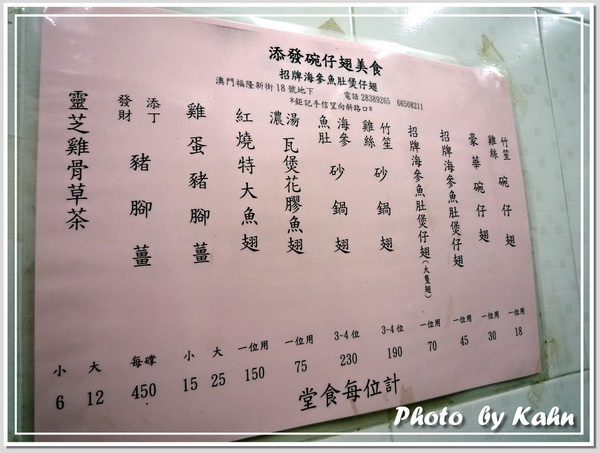 添發碗仔翅美食
招牌海參魚肚煲仔翅
澳門福隆新街18號地下 電話 28389265 66508211
*鉅記手信望向斜路口*
竹笙雞絲碗仔翅 一位用 18
豪華碗仔翅 一位用 30
招牌海參魚肚煲仔翅 一位用 45
招牌海參魚肚煲仔翅(大隻翅) 一位用 70
竹笙雞絲砂鍋翅 3-4位 190
海參魚肚砂鍋翅 3-4位 230
濃湯瓦煲花膠魚翅 一位用 75
紅燒特大魚翅 一位用 150
雞蛋豬腳薑 小 15 大 25
添丁發財豬腳薑 每罉 450
靈芝雞骨草茶 小 6 大 12
堂食每位計
Photo by Kahn